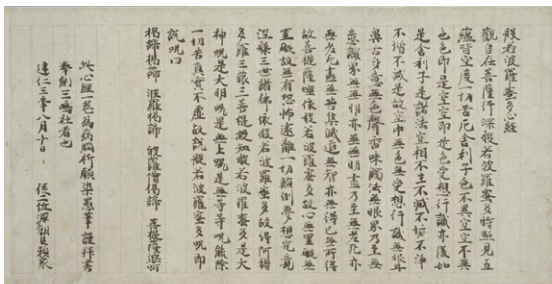 般若波羅蜜多心経
觀自在菩薩行深般若波羅蜜多時照見五
蘊皆空度一切苦厄舎利子色不異空空不異
色色即是空空即是色受想行識亦復如
是舎利子是諸法空相不生不滅不垢不浄
不増不減是故空中無色無受想行識無眼耳
鼻舌身意無色聲香味觸法無眼界乃至無
意識界無無明亦無無明盡乃至無老死亦
無老死盡無苦集滅道無智亦無得已無所得
故菩提薩埵依般若波羅蜜多故心無罣礙無
罣礙故無有恐怖遠離一切顛倒夢想究竟
涅槃三世諸佛依般若波羅蜜多故得阿耨
多羅三藐三菩提故知般若波羅蜜多是大
神呪是大明呪是無上呪是無等等呪能除
一切苦真實不虚故説般若波羅蜜多呪即
説呪曰
揭諦揭諦 波羅揭諦 波羅僧揭諦 菩提薩婆呵
此心經一巻為病脳祈願染愚筆謹拜書
奉納三嶋社者也
建仁三年八月十日 従二位源朝臣頼家